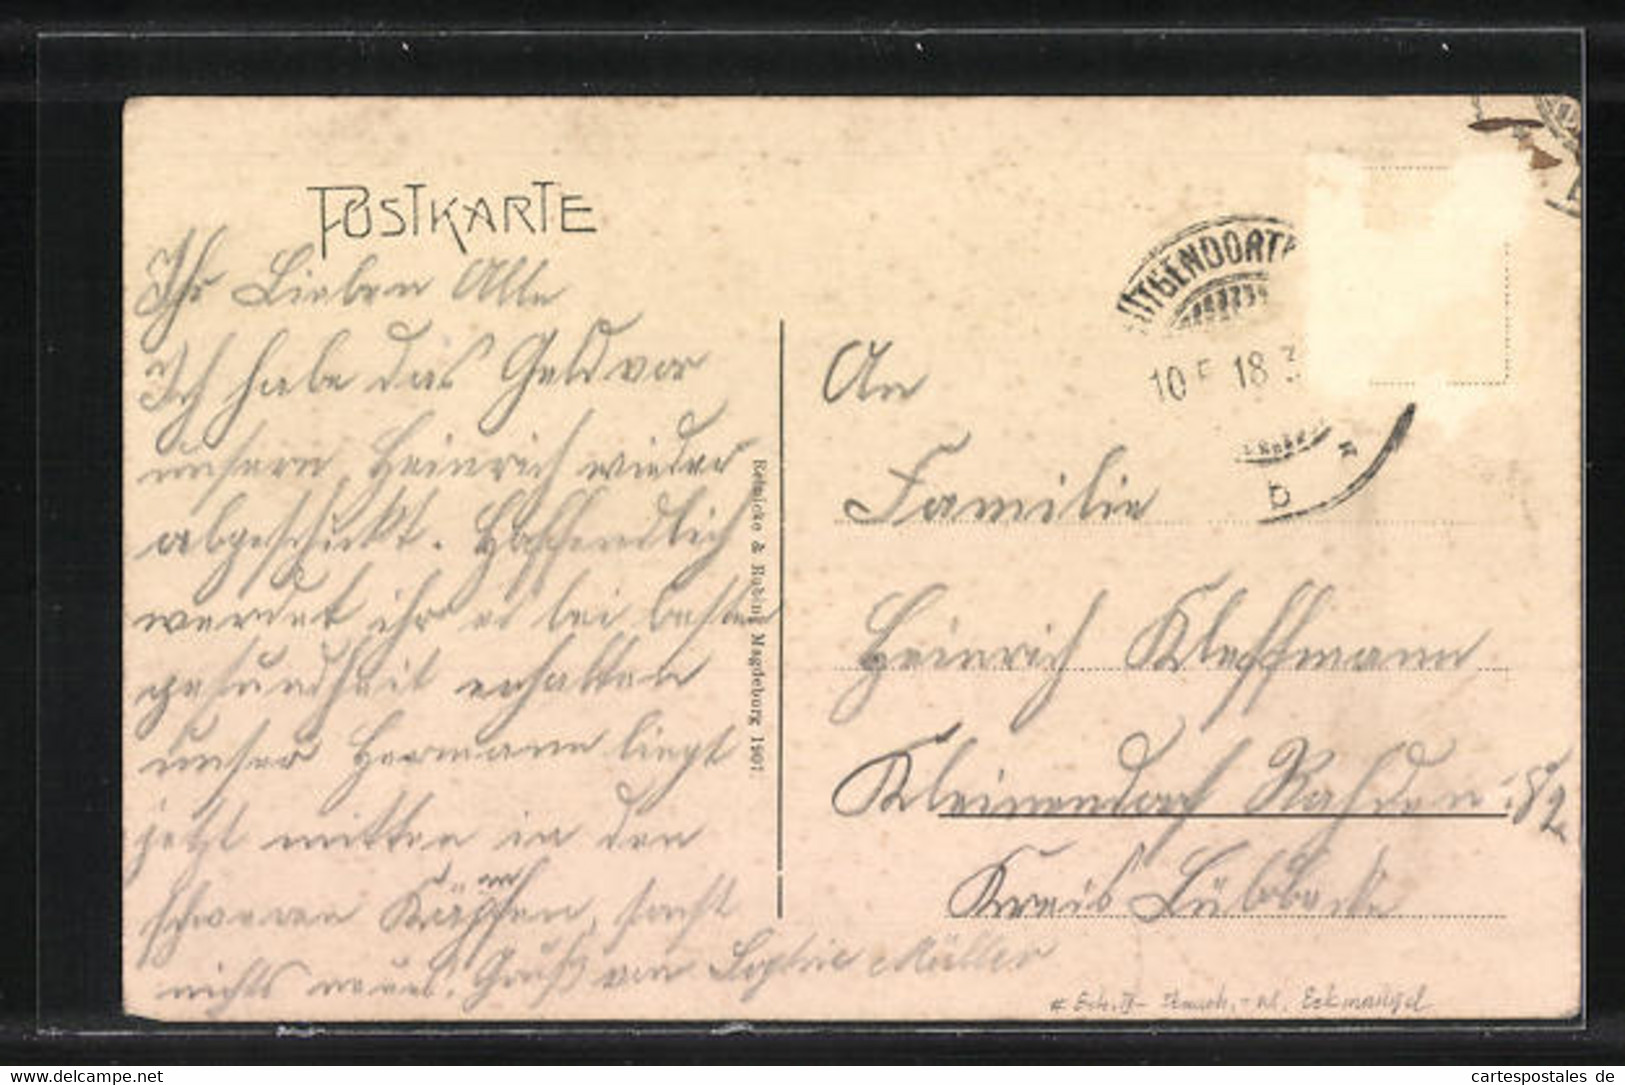 POSTKARTE
Ihr Lieben Alle
Ich habe das Geld von
unsern Heinrich wieder
abgeschickt. Hoffendlich
werdet ihr es bei besten
gesundheit erhalten
unser Hermann liegt
jetzt mitten in den
schweren Kämpfen, sonst
nichts neues. Gruß von Sophie Müller
Reinicke & Rubin, Magdeburg 1907.
LÜTGENDORTM
10 5 18 3
b
An
Familie
Heinrich Kleffmann
Kleinendorf Rahden 82
Kreis Lübbecke
Eckmängel
https://www.delcampe.net
cartespostales de